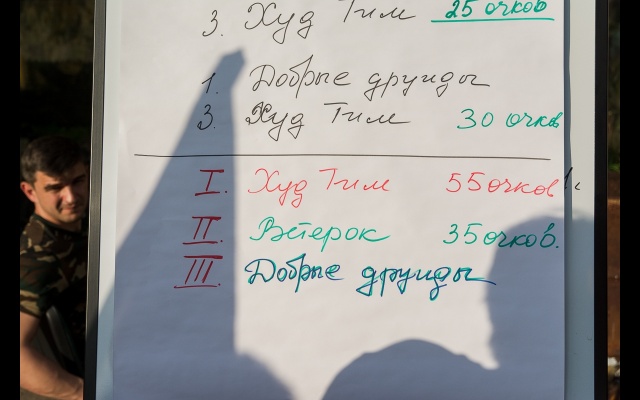 3. Худ Тим 25 очков
1. Добрые друиды
3. Худ Тим 30 очков
I. Худ Тим 55 очков
II. Ветерок 35 очков.
III. Добрые друиды